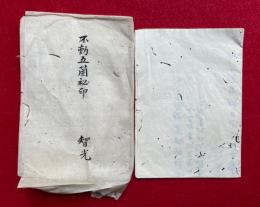 不動五箇秘印
智光